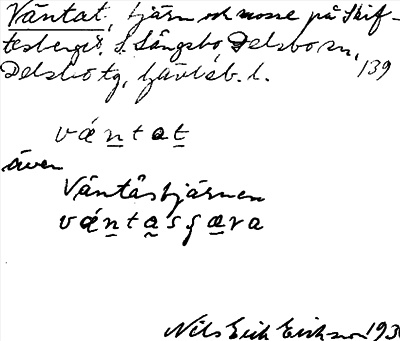 Väntat, tjärn och mosse på Skif-
tesberget. S. Långsbo, Delsbo sn,
Delsbo tg, Gävleb. l. 139
vántat
även
Väntåstjärnen
Nils Erik Eriksson 193